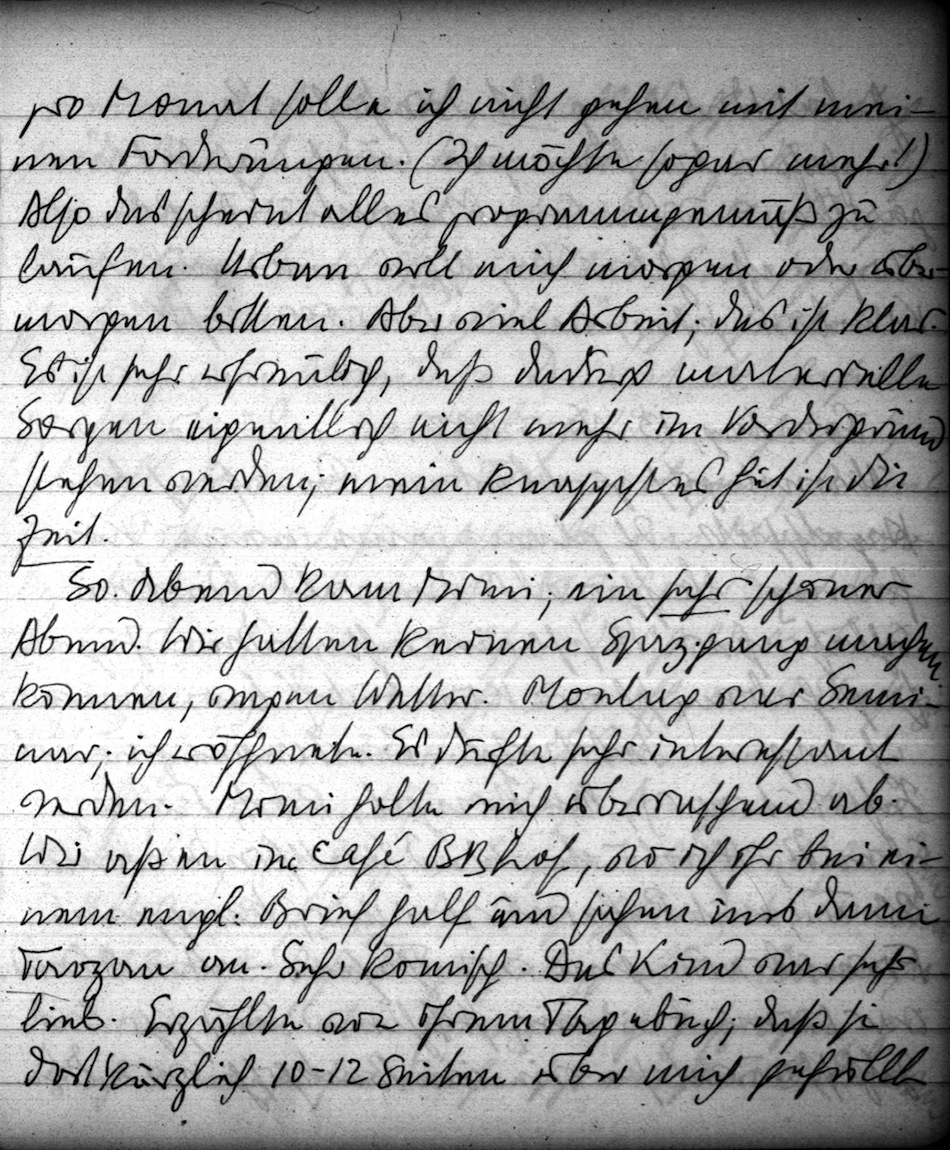 pro Monat solle ich nicht gehen mit mei-
nen Forderungen. (Ich möchte sogar mehr!)
Also das scheint alles programmgemäß zu
laufen. Urban will mich morgen oder über-
morgen bitten. Aber viel Arbeit; das ist klar.
Es ist sehr erfreulich, daß dadurch materielle
Sorgen eigentlich nicht mehr im Vordergrund
stehen werden; mein knappstes Gut ist die
Zeit.
So. Abend kam Moni; ein sehr schöner
Abend. Wir hatten keinen Spazgang machen
können, wegen Wetter. Montag war Semi-
nar; ich eröffnete. Es dürfte sehr interessant
werden. Moni holte mich überraschend ab.
Wir aßen im Café BBhof, wo ich ihr bei ei-
nem engl. Brief half und sahen uns dann
Tarzan an. Sehr komisch. Das Kind war sehr
lieb. Erzählte von ihrem Tagebuch; daß sie
dort kürzlich 10-12 Seiten über mich gefüllt